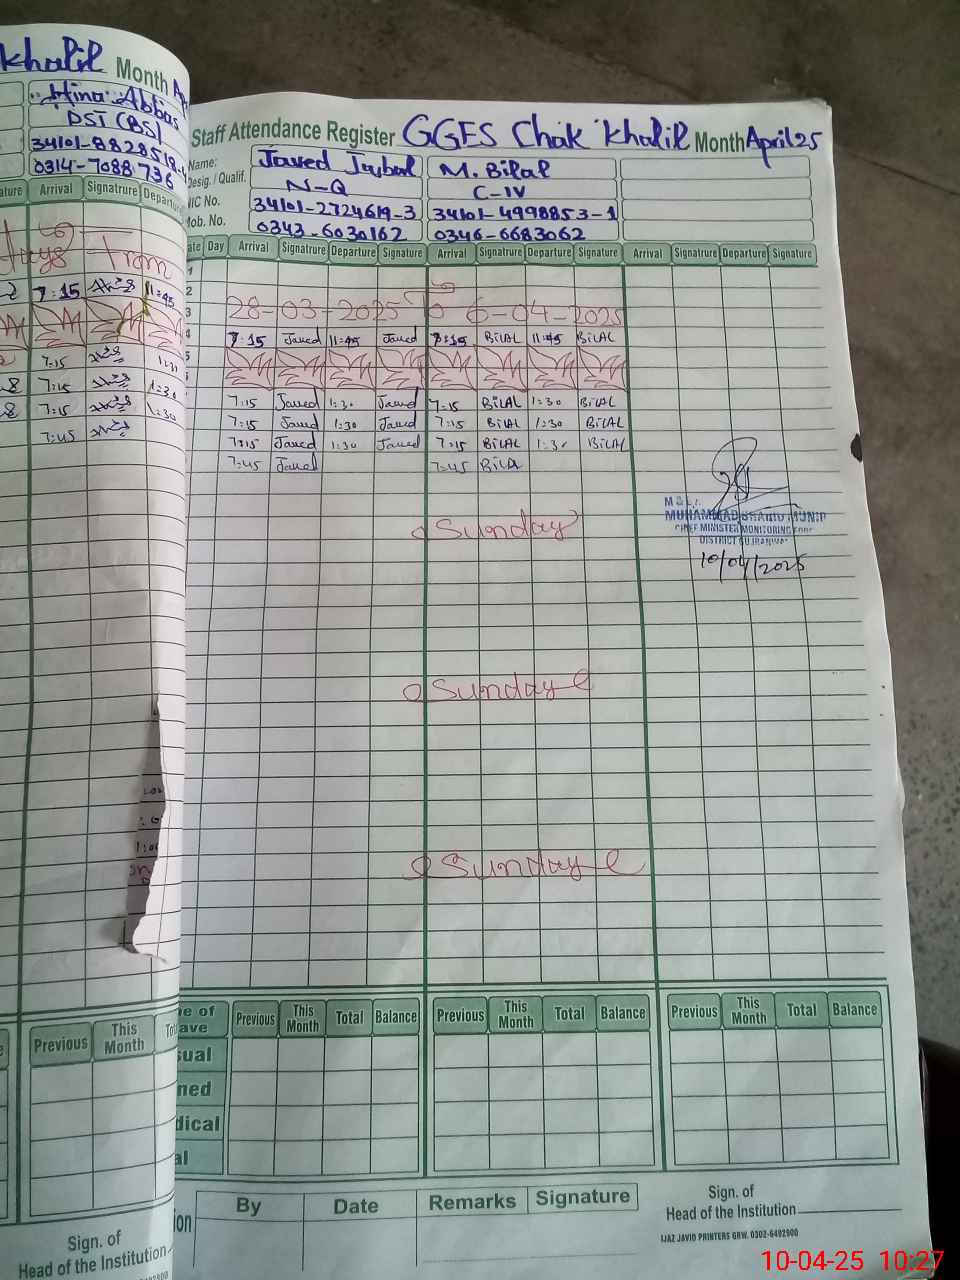 Khalil Month
Hina Abbas
PST (BS)
0314-7088736
Arrival Signatrure
days from
7:15 11:45
7:15
7:15 1:30
7:15 1:30
7:45
Previous This Month
Sign. of
Head of the Institution
Staff Attendance Register GGES Chak Khalil Month April 25
Name: Javed Iqbal M. Bilal
Desig. / Qualif. N-Q C-IV
NIC No. 34101-2724619-3 34101-4998853-1
Mob. No. 0343-6030162 0346-6683062
Day Arrival Signatrure Departure Signature Arrival Signatrure Departure Signature Arrival Signatrure Departure Signature
1
2
3 28-03-2025 to 6-04-2025
4 7:15 Javed 11:45 Javed 7:15 BILAL 11:45 BILAL
5
7:15 Javed 1:30 Javed 7:15 BILAL 1:30 BILAL
7:15 Javed 1:30 Javed 7:15 BILAL 1:30 BILAL
7:15 Javed 1:30 Javed 7:15 BILAL 1:30 BILAL
7:45 Javed 7:45 BILAL
Sunday
MUHAMMAD SHAHID MUNIR
CHIEF MINISTER MONITORING FORCE
DISTRICT GUJRANWALA
10/04/2025
Sunday
Sunday
Previous This Month Total Balance Previous This Month Total Balance Previous This Month Total Balance
By Date Remarks Signature
Sign. of
Head of the Institution
IJAZ JAVID PRINTERS GRW. 0302-6492900
10-04-25 10:27